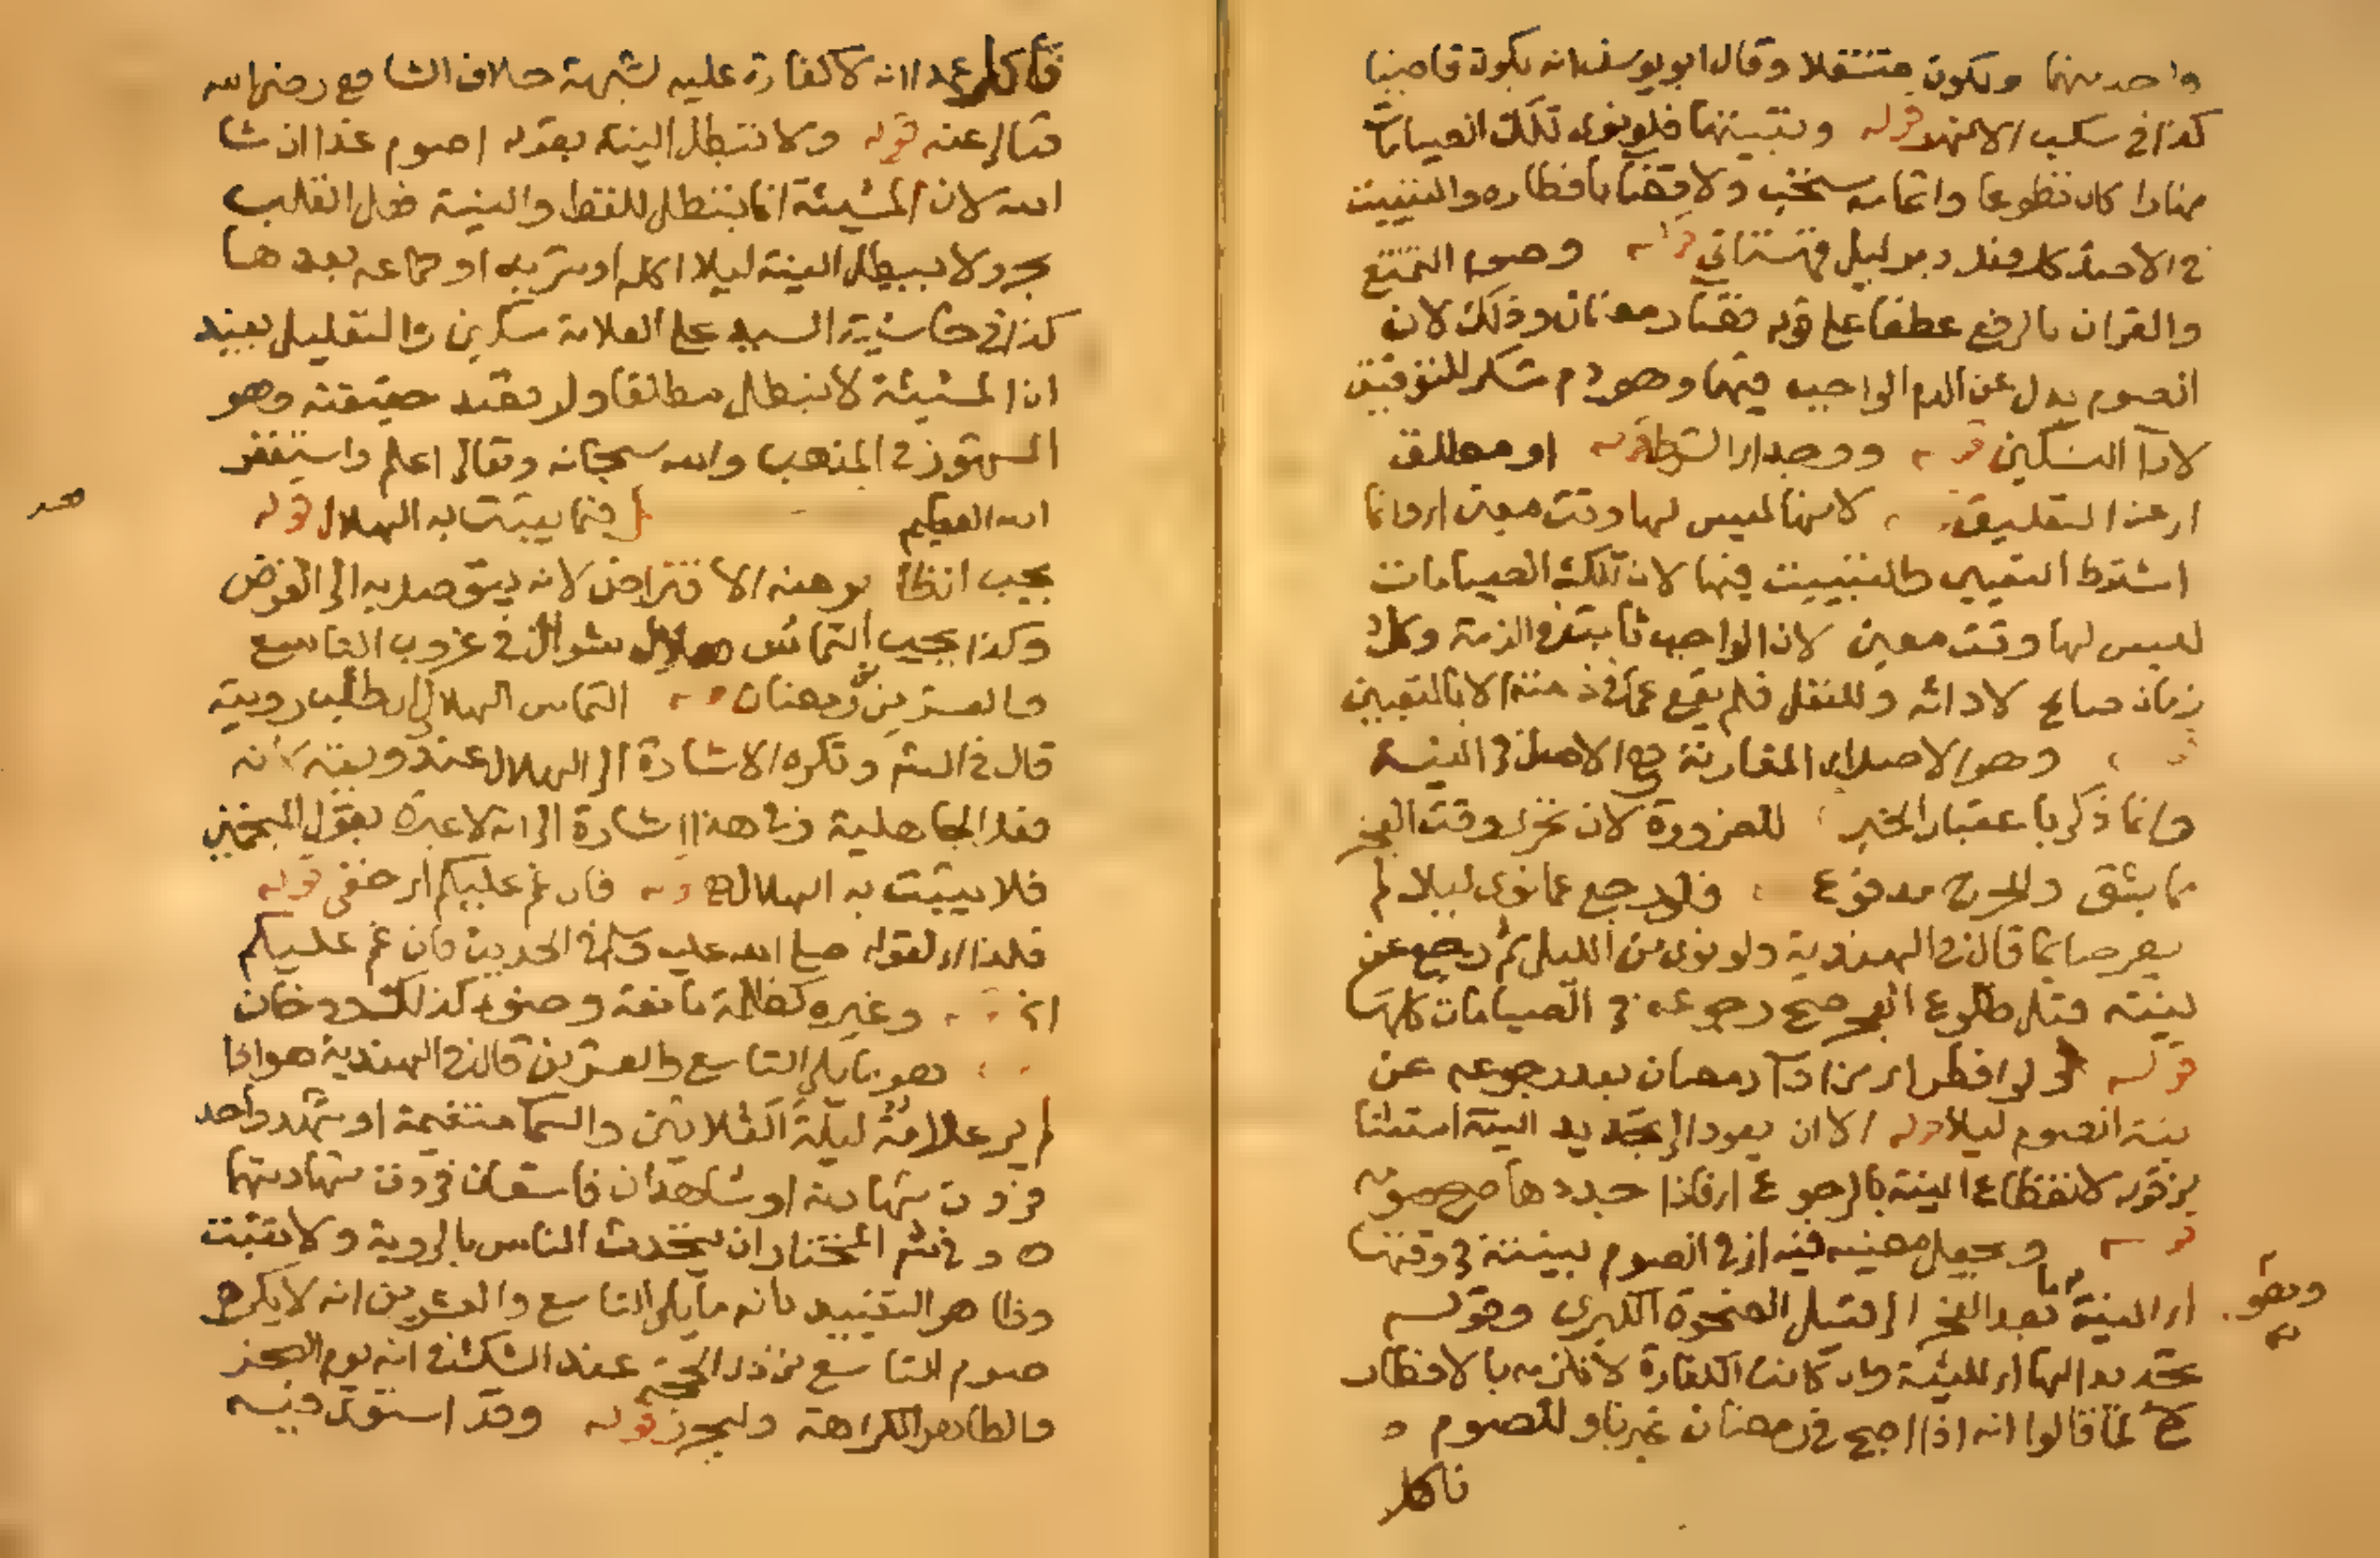 واحد منهما ويكون متنفلا وقال ابو يوسف انه يكون قاضيا
كذا في سكب الانهر قوله وتبييتها فلو نوى تلك الصيامات
نهارا كان تطوعا واتمامه مستحب ولا قضاء بافطاره والتبييت
في الاصل كل فعل دبر ليل قهستاني قوله وصوم التمتع
والقران بالرفع عطفا على قوله قضاء رمضان وذلك لان
الصوم بدل عن الدم الواجب فيهما وهو دم شكر للتوفيق
لاداء النسكين قوله ووجد الشرط قوله او مطلق
اي عن التعليق لانها ليس لها وقت معين اي وانما
اشترط التعيين والتبييت فيها لان تلك الصيامات
ليس لها وقت معين لان الواجب ثابت في الذمة وكل
زمان صالح لادائه وللنفل فلم يقع عما في ذمته الا بالتعيين
وهو الاصل اي المقارنة هي الاصل في النية
وانما ذكر باعتبار الخبر للضرورة لان تحري وقت الفجر
مما يشق والحرج مدفوع فلو رجع عما نوى ليلا لم
يصر صائما قال في الهندية ولو نوى من الليل ثم رجع عن
نيته قبل طلوع الفجر صح رجوعه في الصيامات كلها
قوله ولو افطر اي من اداء رمضان بعد رجوعه عن
نية الصوم ليلا قوله الا ان يعود الى تجديد النية استثنا
من قوله لانقطاع النية بالرجوع اي فاذا جددها صح صومه
قوله ويحصل مضيه فيه اي في الصوم بنيته في وقتها
اي النية بعد الفجر الى قبيل الضحوة الكبرى وقوله
تجديد لها اي للنية وان كانت الكفارة لا تلزمه بالافطار
لما قالوا انه اذا اصبح في رمضان غير ناو للصوم
فاكل
فاكل عمدا انه لا كفارة عليه لشبهة خلاف الشافعي رضي الله
تعالى عنه قوله ولا تبطل النية بقوله اصوم غدا ان شا
الله لان المشيئة انما تبطل اللفظ والنية فعل القلب
بحر ولا يبطل النية ليلا اكله او شربه او جماعه بعدها
كذا في حاشية السيد على العلامة مسكين والتعليل يفيد
ان المشيئة لا تبطل مطلقا ولو قصد حقيقته وهو
في المذهب والله سبحانه وتعالى اعلم واستغفر
الله العظيم فيما يثبت به الهلال قوله
يجب لانه يتوصل به الى الفرض
وكذا يجب التماس هلال شوال في غروب التاسع
والعشرين من رمضان قوله التماس الهلال اي طلب رويته
قال في وتكره الاشارة الى الهلال عند رويته لانه
فعل الجاهلية وفي هذا اشارة الى انه لا عبرة بقول المنجمين
فلا يثبت به الهلال قوله فان غم عليكم اي خفي قوله
فلذا اي لقوله صلى الله عليه وسلم في الحديث فان غم عليكم
الخ وغيره وضوء كذلك ودخان
وهو ما يلي التاسع والعشرين قال في الهندية هو اذا
لم ير علامة ليلة الثلاثين والسما متغيمة او شهد واحد
فردت شهادته او شاهدان فاسقان فردت شهادتهما
وفي المختار ان يتحدث الناس بالروية ولا تثبت
وظاهر التقييد بانه ما يلي التاسع والعشرين انه لا يكره
صوم التاسع من ذي الحجة عند الشك في انه يوم النحر
والظاهر الكراهة وليحرر قوله وقد استوى فيه